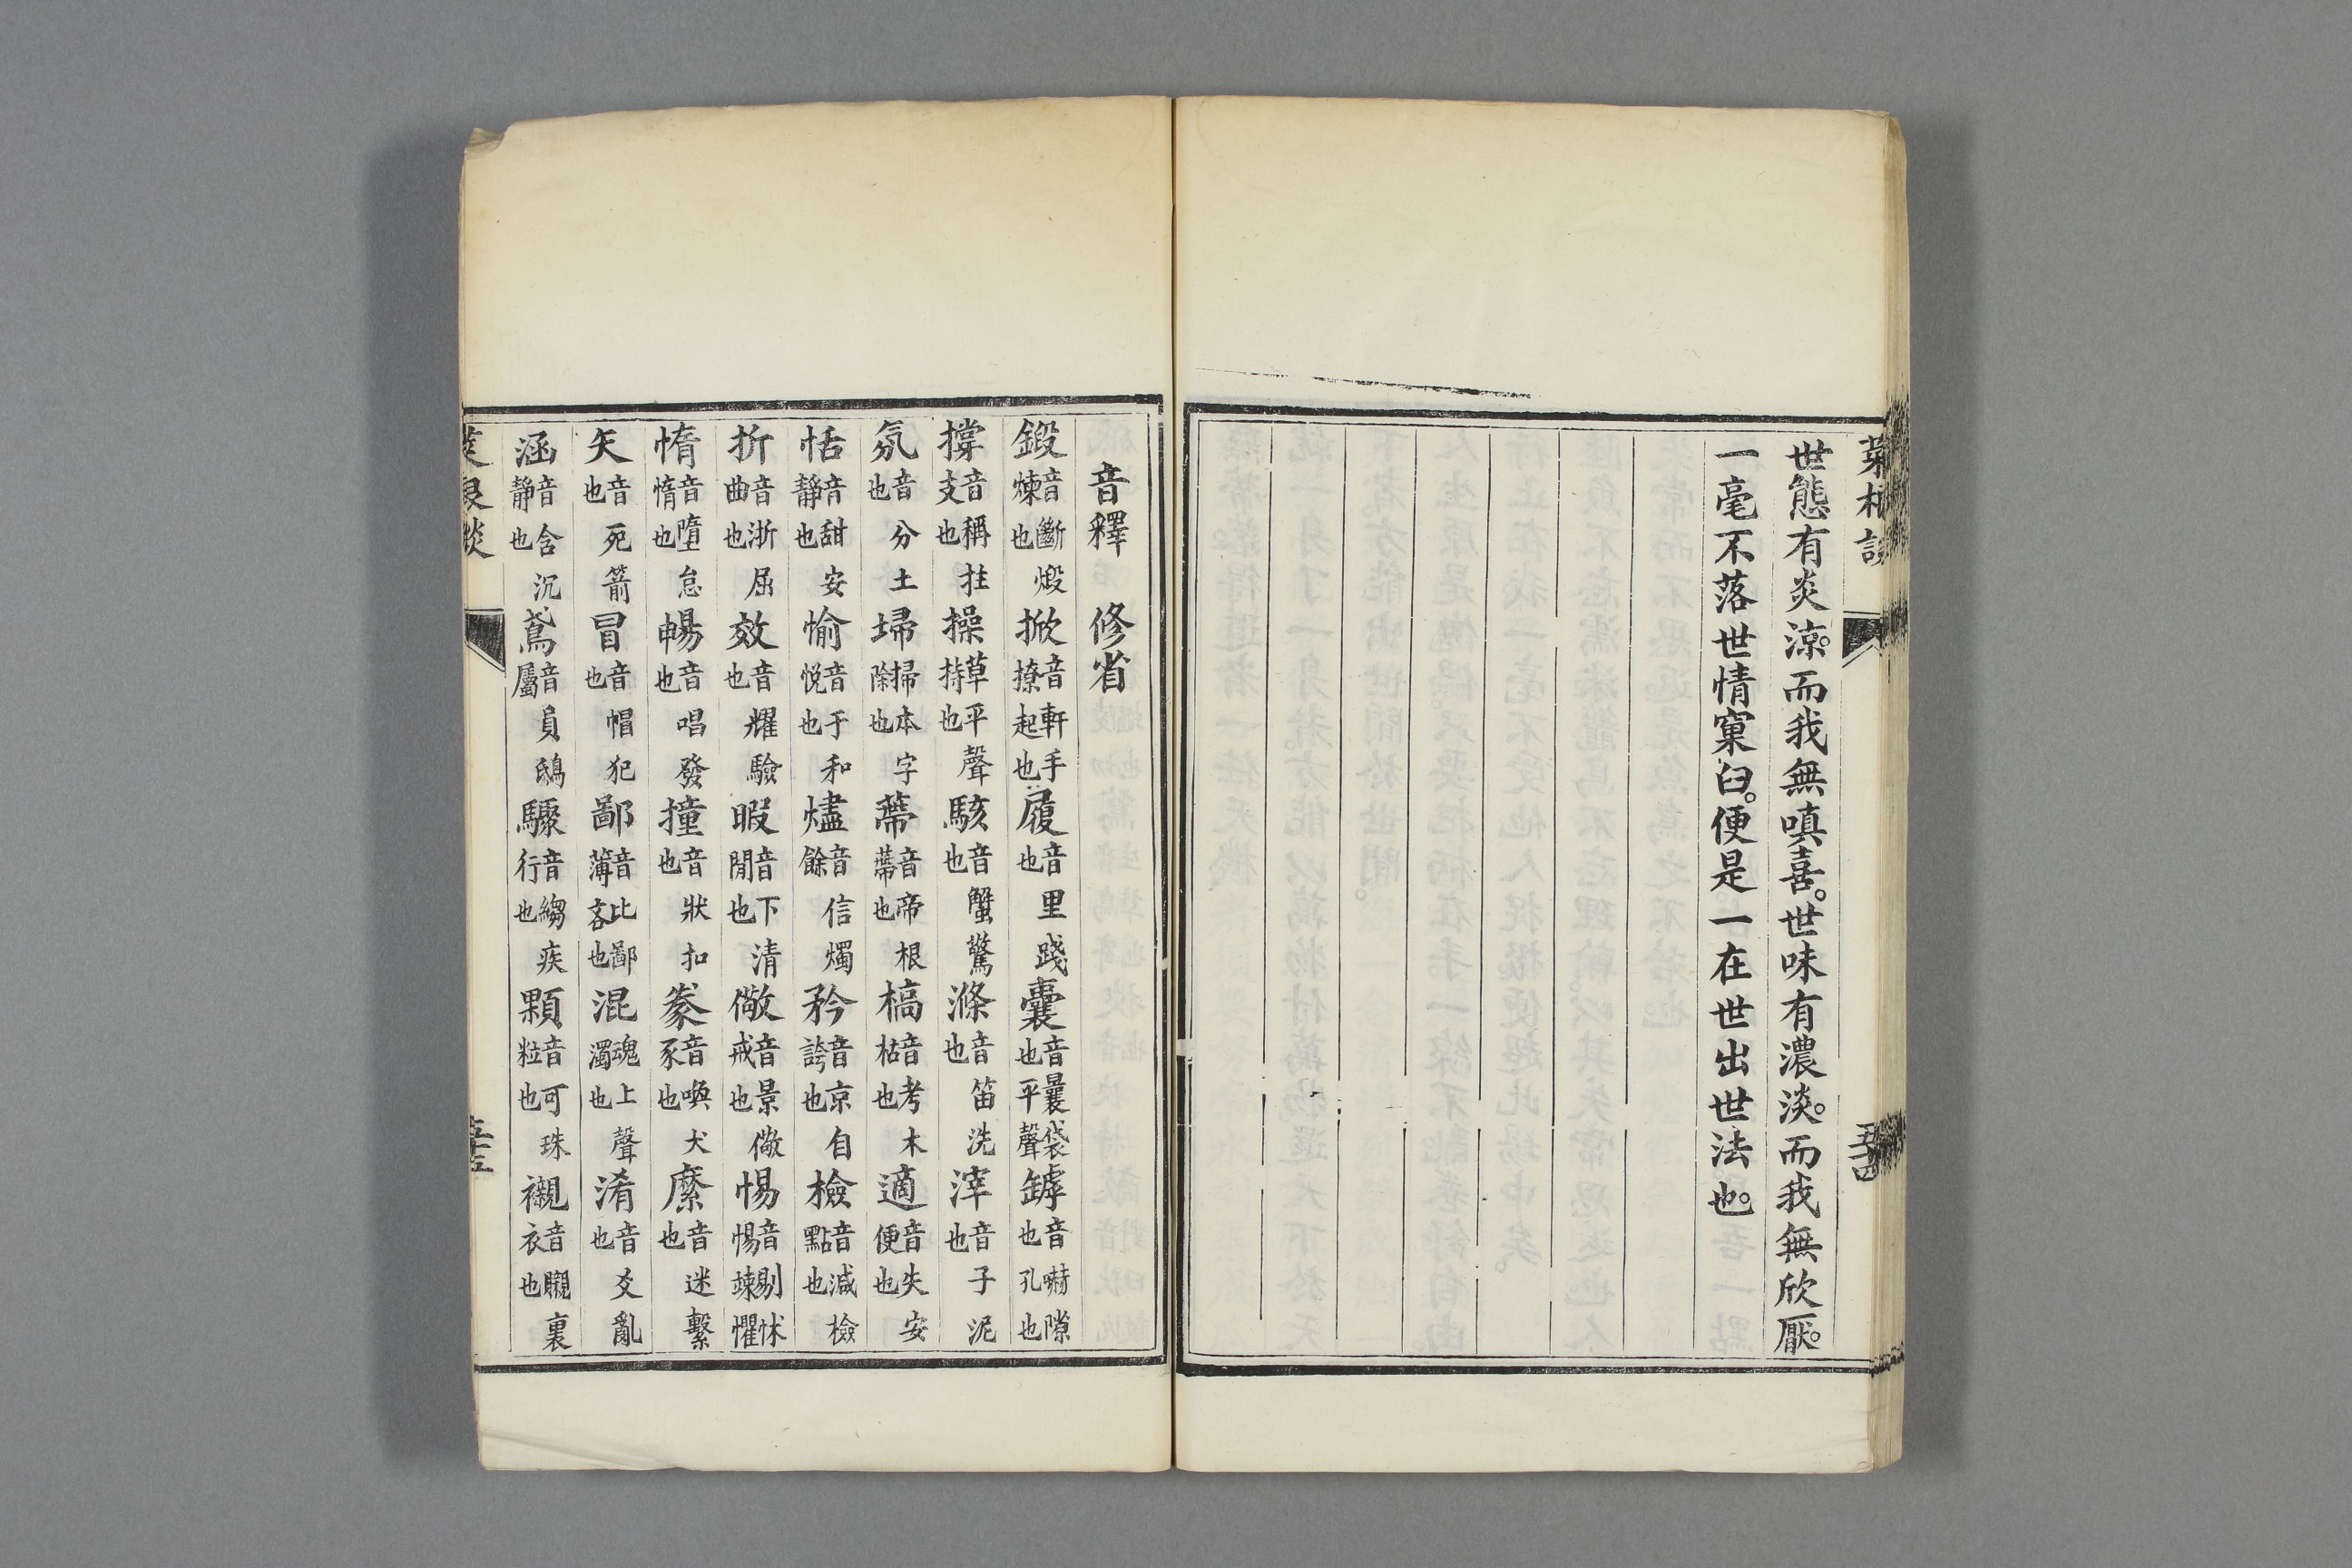 菜根談
五十四
世態有炎涼。而我無嗔喜。世味有濃淡。而我無欣厭。
一毫不落世情窠臼。便是一在世出世法也。
音釋 修省
鍛音斷煅煉也 掀音軒手撩起也 履音里踐也 囊音曩平聲袋也 罅音嚇孔隙也
撐音稱拄支也 操草平聲持也 駭音蟹驚也 滌音笛洗也 滓音子泥也
氛音分土也 埽掃本字除也 蔕音帝根蔕也 槁音考木枯也 適音失安便也
恬音甜安靜也 愉音于和悅也 燼音信燭餘 矜音京自誇也 檢音減檢點也
折音浙屈曲也 效音耀驗也 暇音下清閒也 儆音景儆戒也 惕音剔怵惕悚懼
惰音墮怠惰也 暢音唱發也 撞音狀扣也 豢音喚犬豕也 縻音迷繫也
矢音死箭也 冒音帽犯也 鄙音比鄙薄吝也 混魂上聲濁也 淆音爻亂也
涵音含沉靜也 鳶音員鴟屬 驟音縐疾行也 顆音可珠粒也 襯音䞋裏衣也
菜根談
五十五